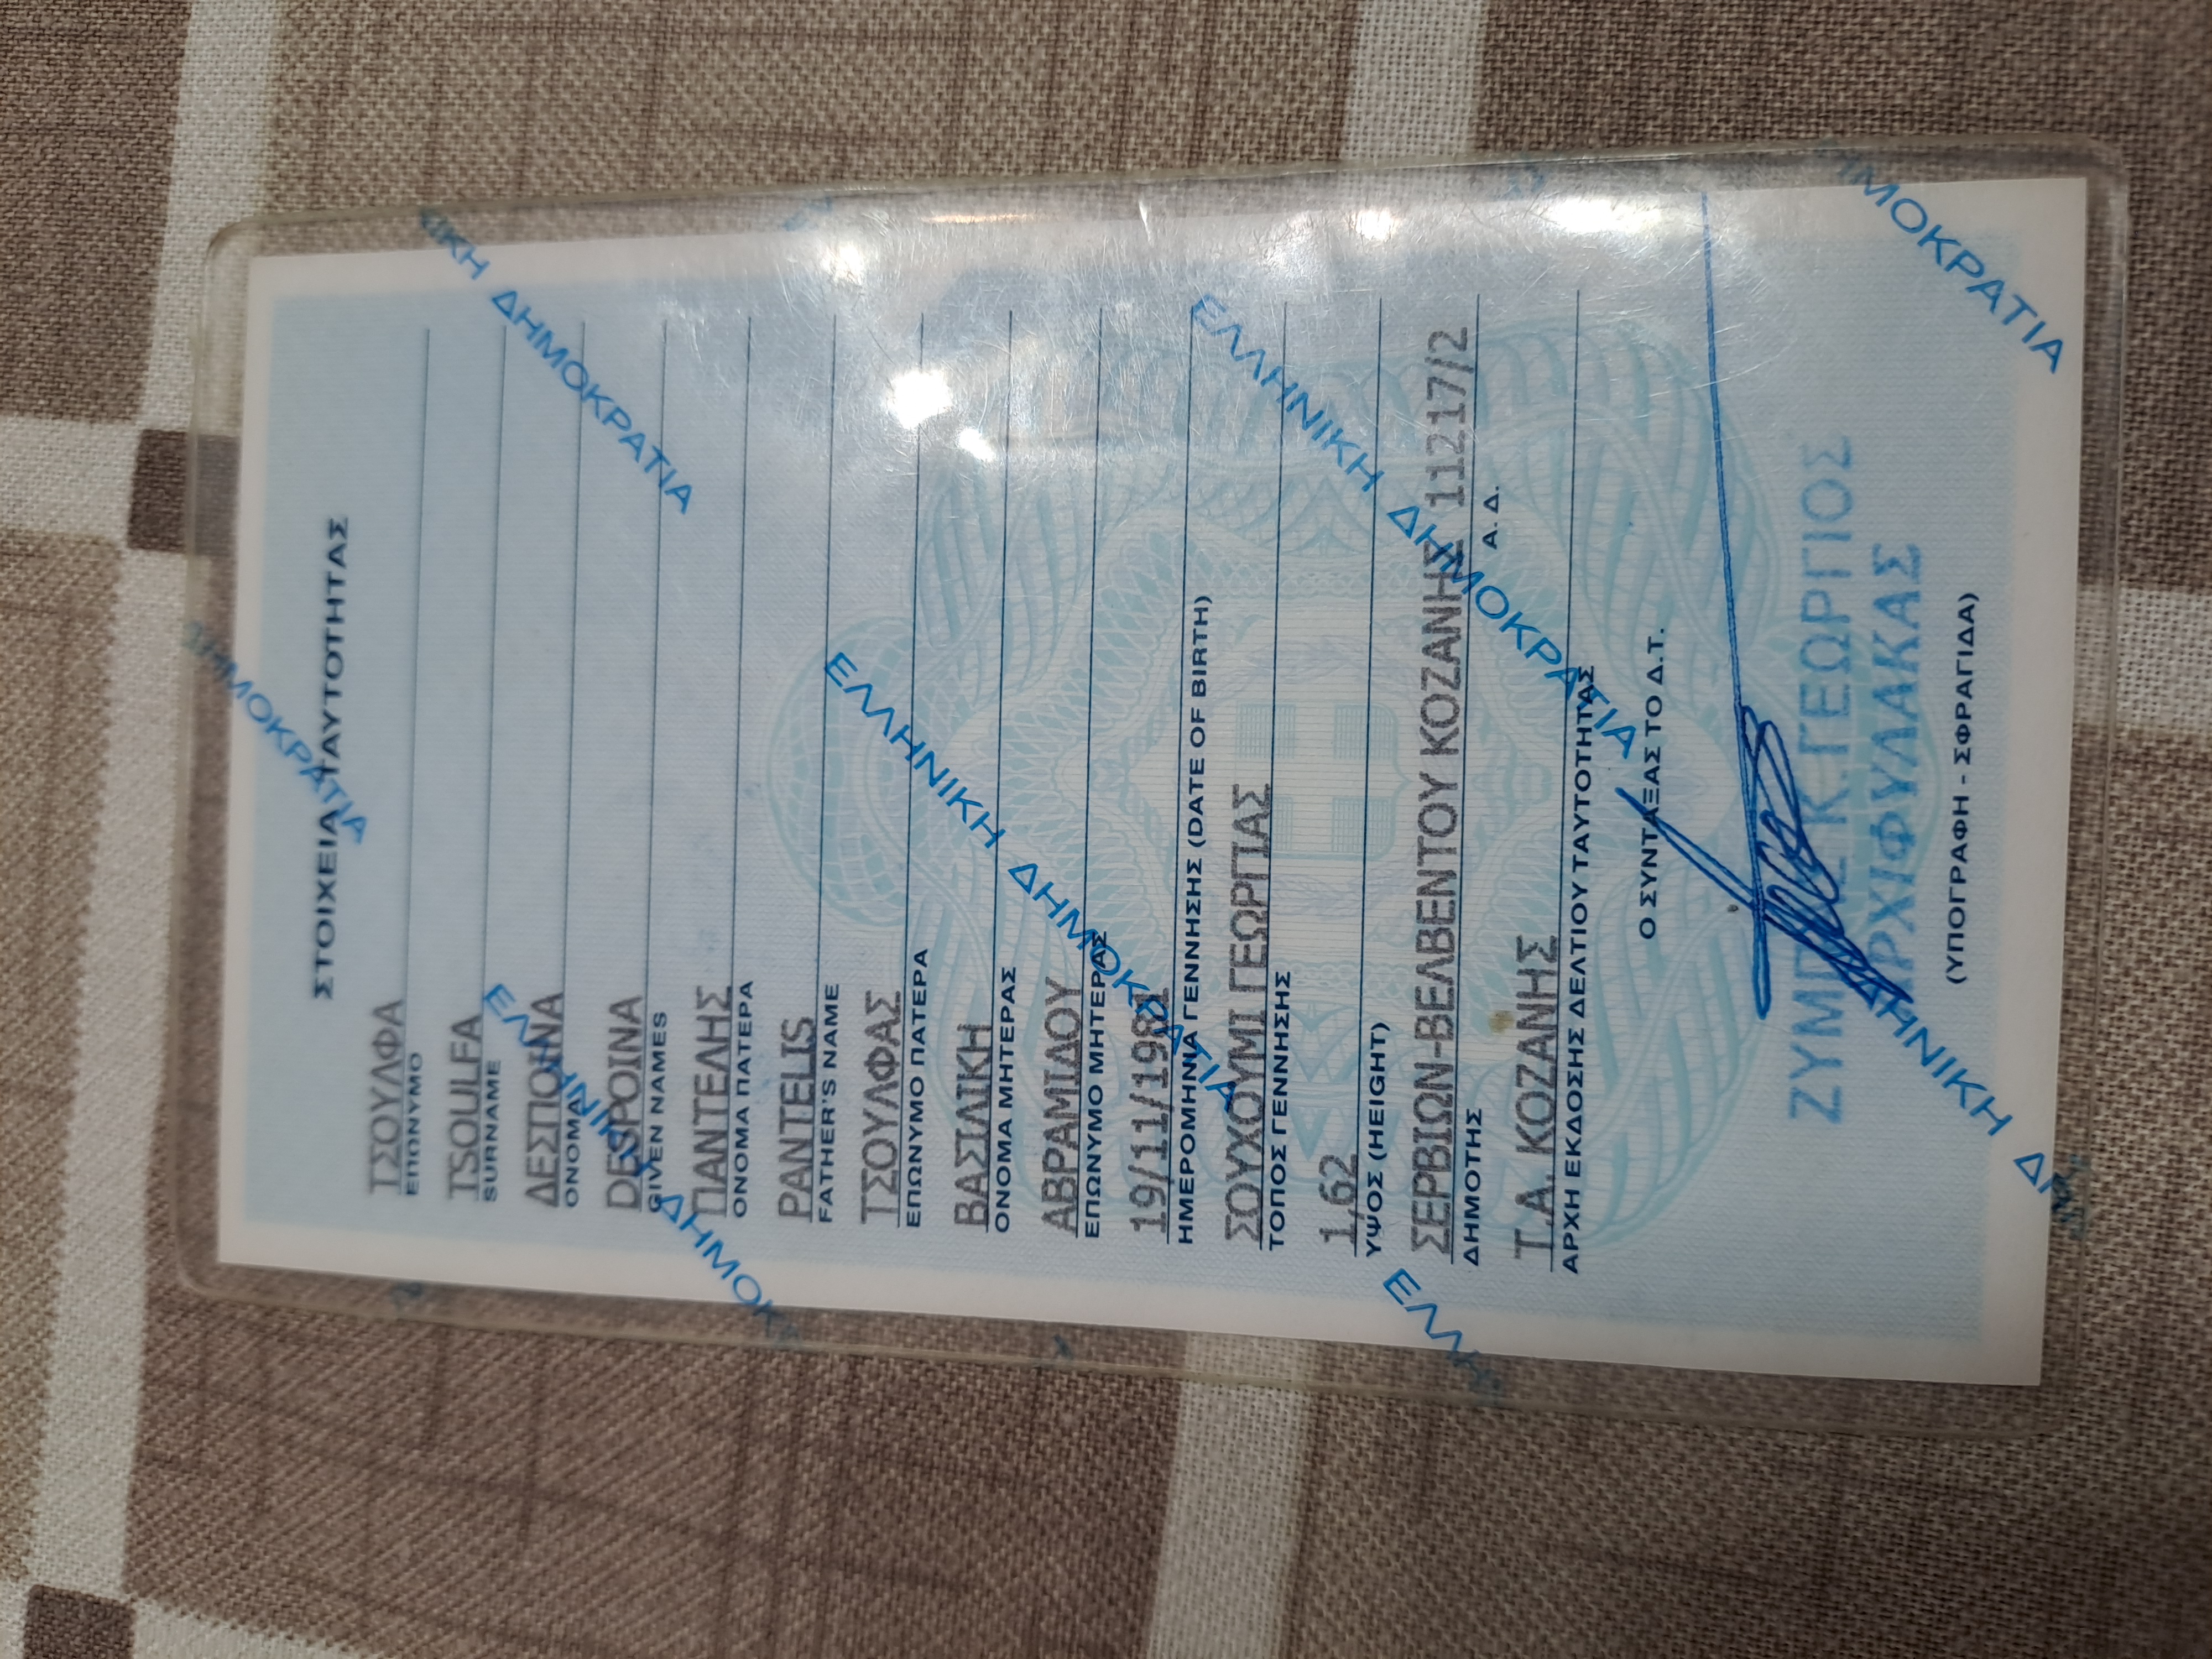 ΣΤΟΙΧΕΙΑ ΤΑΥΤΟΤΗΤΑΣ
ΤΣΟΥΛΦΑ
ΕΠΩΝΥΜΟ
TSOULFA
SURNAME
ΔΕΣΠΟΙΝΑ
ΟΝΟΜΑ
DESPOINA
GIVEN NAMES
ΠΑΝΤΕΛΗΣ
ΟΝΟΜΑ ΠΑΤΕΡΑ
PANTELIS
FATHER'S NAME
ΤΣΟΥΛΦΑΣ
ΕΠΩΝΥΜΟ ΠΑΤΕΡΑ
ΒΑΣΙΛΙΚΗ
ΟΝΟΜΑ ΜΗΤΕΡΑΣ
ΑΒΡΑΜΙΔΟΥ
ΕΠΩΝΥΜΟ ΜΗΤΕΡΑΣ
19/11/1981
ΗΜΕΡΟΜΗΝΙΑ ΓΕΝΝΗΣΗΣ (DATE OF BIRTH)
ΣΟΥΧΟΥΜΙ ΓΕΩΡΓΙΑΣ
ΤΟΠΟΣ ΓΕΝΝΗΣΗΣ
1,62
ΥΨΟΣ (HEIGHT)
ΣΕΡΒΙΩΝ-ΒΕΛΒΕΝΤΟΥ ΚΟΖΑΝΗΣ 11217/2
ΔΗΜΟΤΗΣ Α. Δ.
Τ.Α. ΚΟΖΑΝΗΣ
ΑΡΧΗ ΕΚΔΟΣΗΣ ΔΕΛΤΙΟΥ ΤΑΥΤΟΤΗΤΑΣ
Ο ΣΥΝΤΑΞΑΣ ΤΟ Δ.Τ.
Κ.ΓΕΩΡΓΙΟΣ
ΑΡΧΙΦΥΛΑΚΑΣ
(ΥΠΟΓΡΑΦΗ - ΣΦΡΑΓΙΔΑ)
ΕΛΛΗΝΙΚΗ ΔΗΜΟΚΡΑΤΙΑ
ΕΛΛΗΝΙΚΗ ΔΗΜΟΚΡΑΤΙΑ